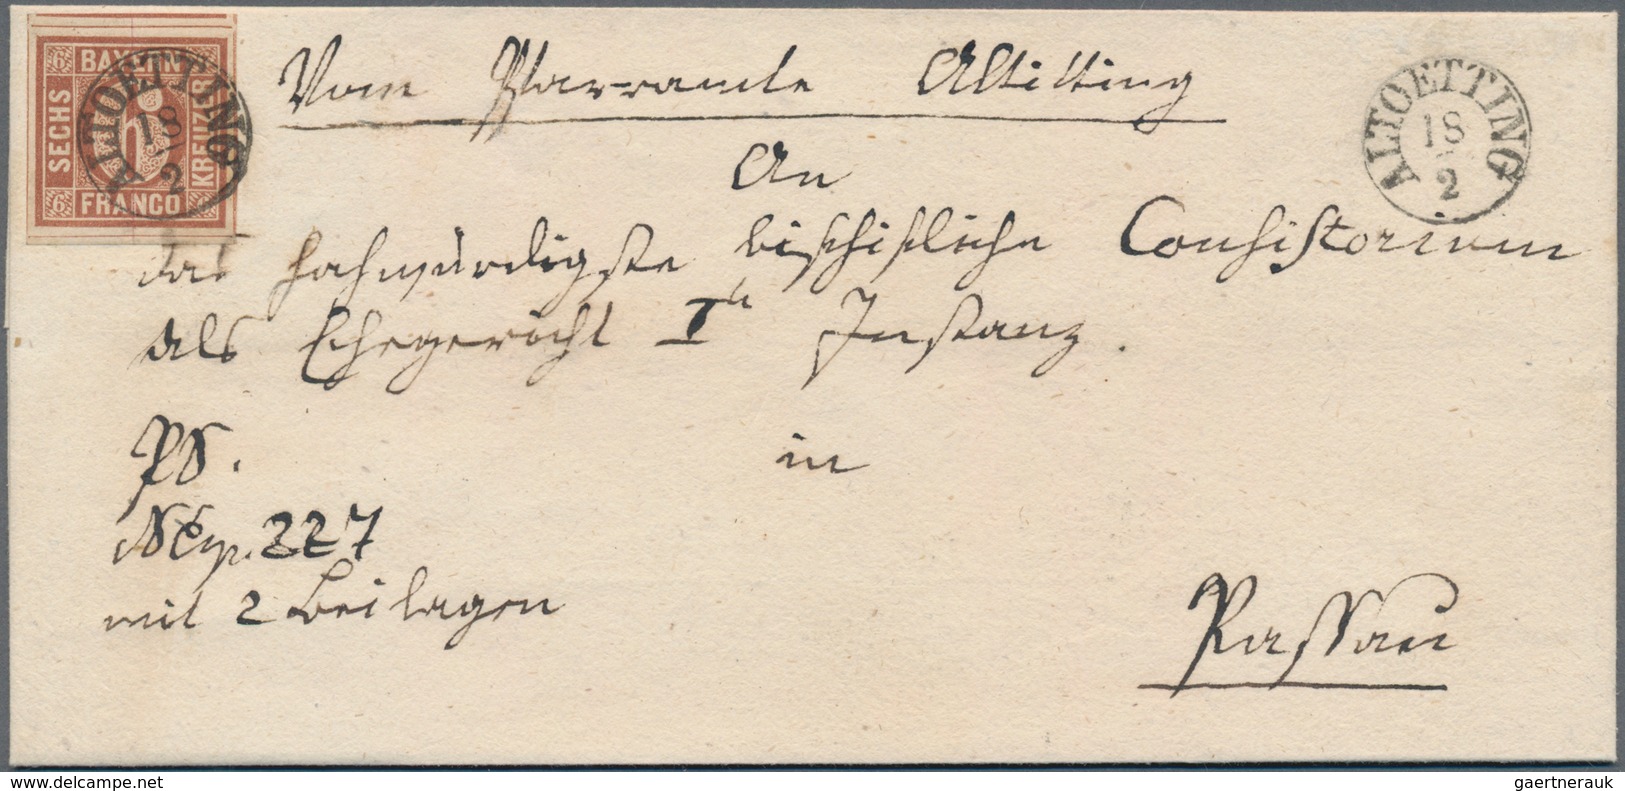 BAYERN
6 6
SECHS
KREUZER
6
6 6
FRANCO
ALTOETTING
18
2
Vom Pfarramte Altötting
ALTOETTING
18
2
An
das hochwürdigste bischöfliche Consistorium
als Ehegericht I Instanz.
PS.
in
NExp. 227
mit 2 Beilagen
Passau
www.delcampe.net
gaertnerauk